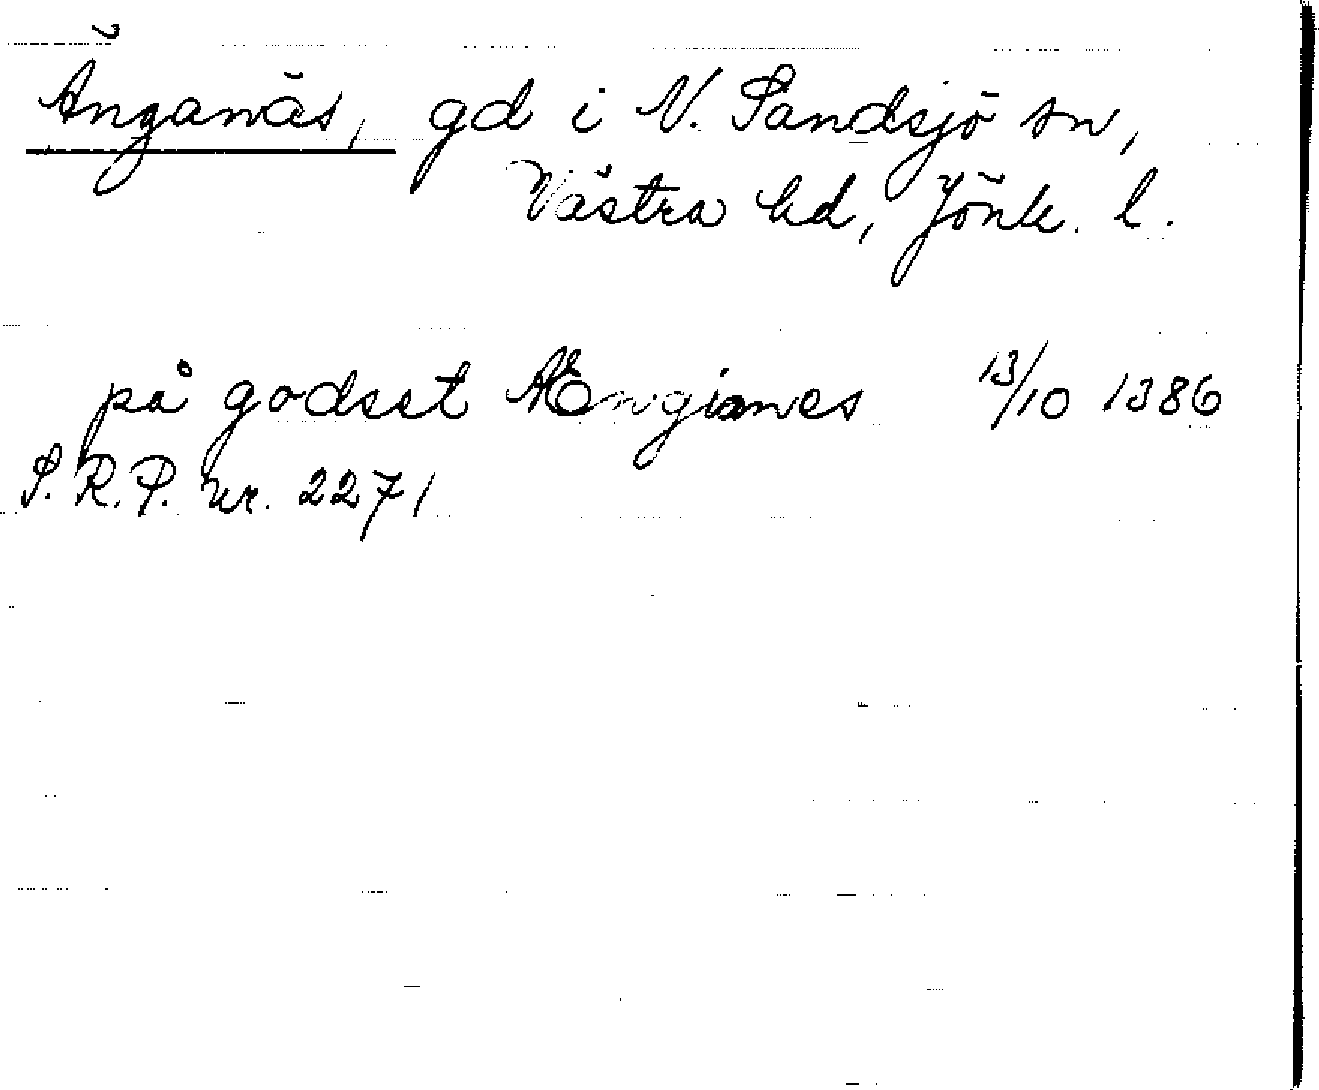 Änganäs, gd i N. Sandsjö sn,
Västra hd, Jönk. l.
på godset Ængianes 13/10 1386
S.R.P. nr. 2271